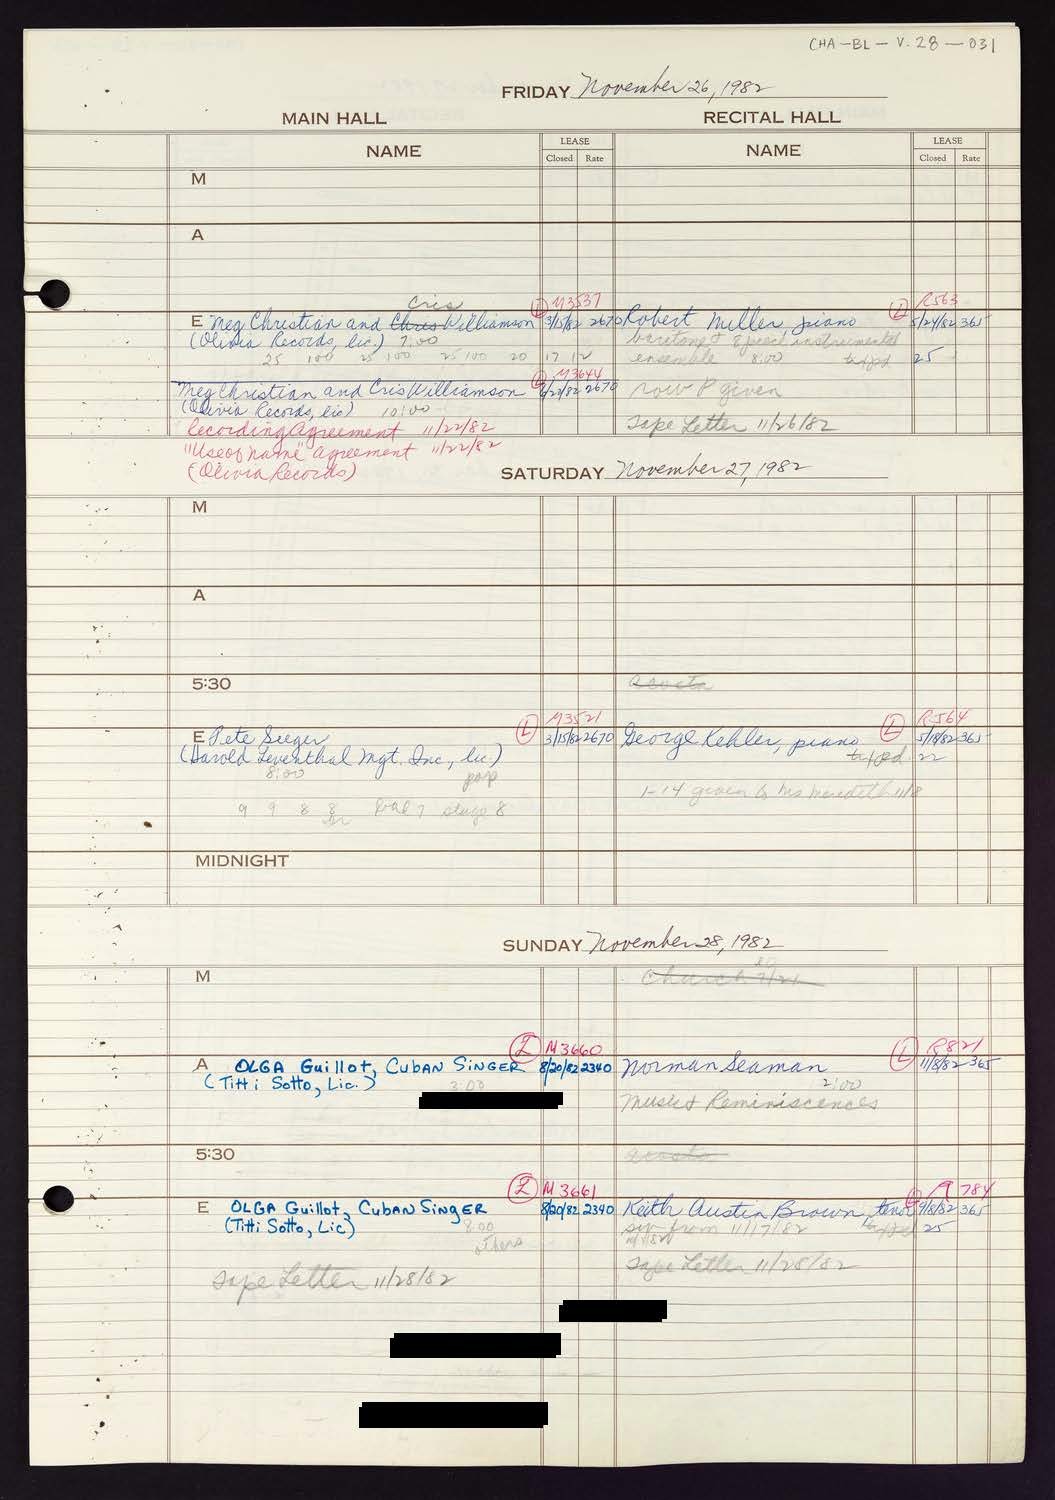 CHA-BL-V.28-031
FRIDAY November 26, 1982
MAIN HALL
RECITAL HALL
NAME
LEASE
Closed Rate
NAME
LEASE
Closed Rate
M
A
Cris
L M3537
E Meg Christian and Chris Williamson 3/15/82 2670
(Olivia Records, lic.) 7:00
25 100 25 100 25 100 20 17 12
L M3644
Meg Christian and Cris Williamson 2670
(Olivia Records, lic) 10:00
Recording Agreement 11/22/82
"Use of Name" Agreement 11/22/82
(Olivia Records)
L R563
Robert Miller, piano 5/24/82 365
baritone & instrumental
ensemble 8:00 25
row P given
Tape Letter 11/26/82
SATURDAY November 27, 1982
M
A
5:30
L M3521
E Pete Seeger 3/15/82 2670
(Harold Leventhal Mgt. Inc., lic)
8:00 pop
9 9 8 8 7 stage 8
L R564
George Kehler, piano 5/18/82 365
22
1-14 given to Ms Meredith 11/8
MIDNIGHT
SUNDAY November 28, 1982
M
Church
L M3660
A OLGA Guillot, CUBAN SINGER 8/20/82 2340
(Titti Sotto, Lic.) 3:00
L R821
Norman Seaman 11/8/82 365
2:00
Music & Reminiscences
5:30
L M3661
E OLGA Guillot, CUBAN SINGER 8/20/82 2340
(Titti Sotto, Lic) 8:00
others
Tape Letter 11/28/82
L R784
Keith Austin Brown, tenor 9/8/82 365
from 11/17/82 25
Tape Letter 11/28/82